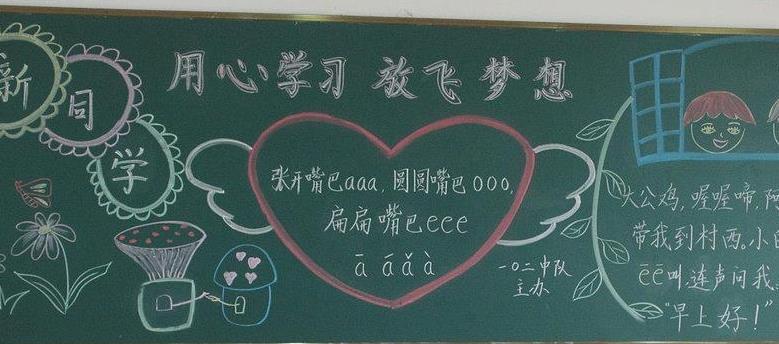 新同学
用心学习 放飞梦想
张开嘴巴aaa,圆圆嘴巴ooo,
扁扁嘴巴eee
ā á ǎ à
一〇二中队
主办
大公鸡,喔喔啼,阿
带我到村西。小白
ēē叫,连声问我
“早上好!”